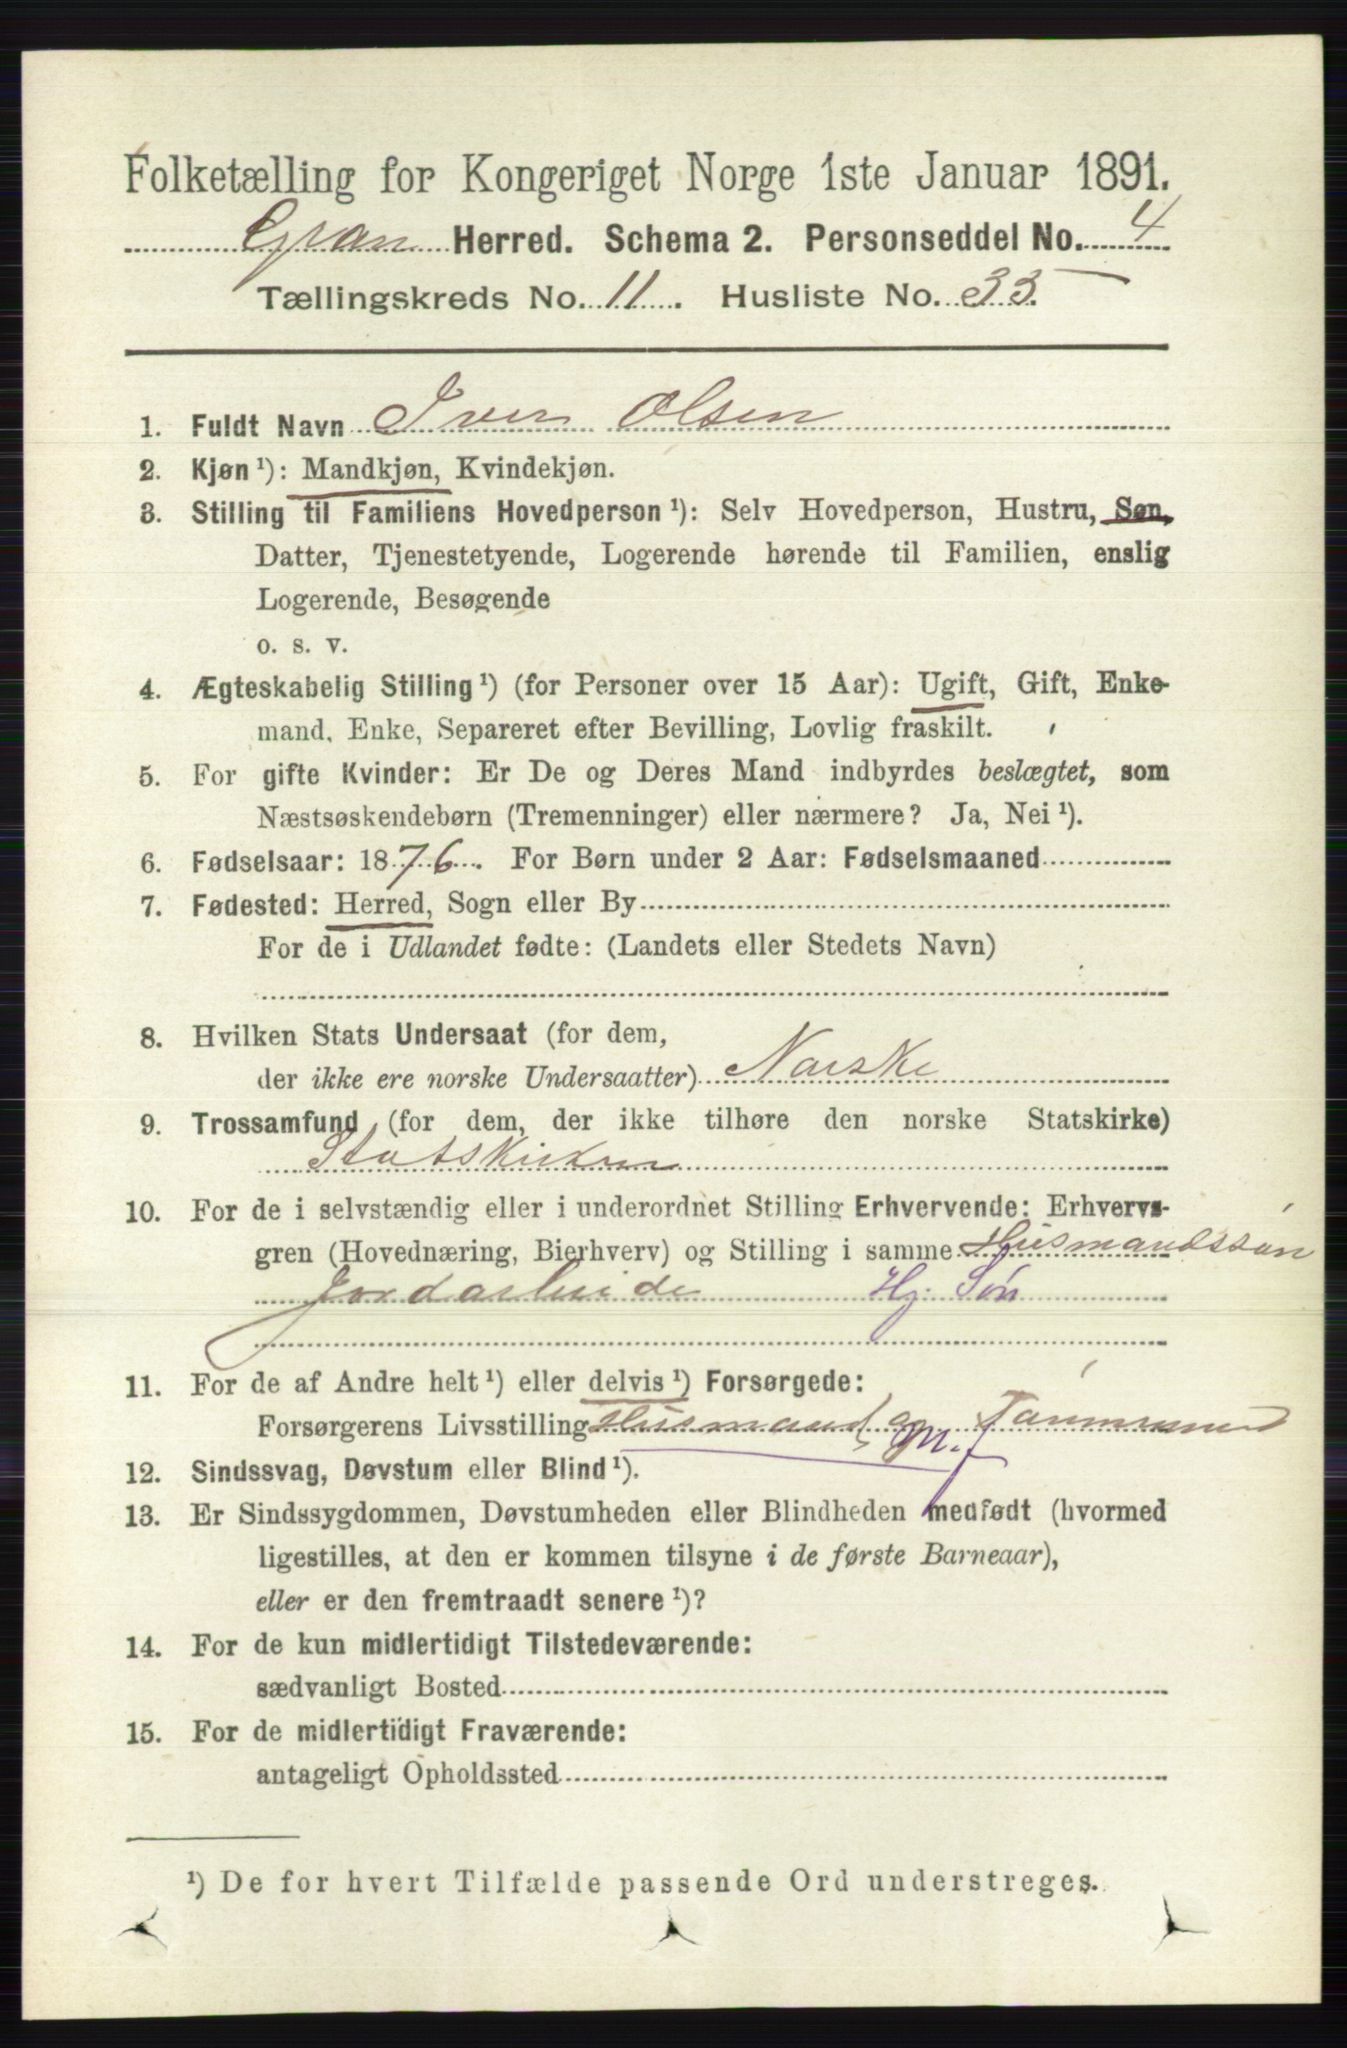 Folketælling for Kongeriget Norge 1ste Januar 1891.
Gran Herred. Schema 2. Personseddel No. 4
Tællingskreds No. 11. Husliste No. 33.
1. Fuldt Navn Iver Olsen
2. Kjøn ¹): Mandkjøn, Kvindekjøn.
3. Stilling til Familiens Hovedperson ¹): Selv Hovedperson, Hustru, Søn,
Datter, Tjenestetyende, Logerende hørende til Familien, enslig
Logerende, Besøgende
o. s. v.
4. Ægteskabelig Stilling ¹) (for Personer over 15 Aar): Ugift, Gift, Enke-
mand, Enke, Separeret efter Bevilling, Lovlig fraskilt.
5. For gifte Kvinder: Er De og Deres Mand indbyrdes beslægtet, som
Næstsøskendebørn (Tremenninger) eller nærmere? Ja, Nei ¹).
6. Fødselsaar: 1876. For Børn under 2 Aar: Fødselsmaaned
7. Fødested: Herred, Sogn eller By
For de i Udlandet fødte: (Landets eller Stedets Navn)
8. Hvilken Stats Undersaat (for dem,
der ikke ere norske Undersaatter) Norske
9. Trossamfund (for dem, der ikke tilhøre den norske Statskirke)
Statskirken
10. For de i selvstændig eller i underordnet Stilling Erhvervende: Erhvervs-
gren (Hovednæring, Bierhverv) og Stilling i samme Husmandssøn
Jordarbeide Hj. Søn
11. For de af Andre helt ¹) eller delvis ¹) Forsørgede:
Forsørgerens Livsstilling Husmand og Tømmermand
m. j
12. Sindssvag, Døvstum eller Blind ¹).
13. Er Sindssygdommen, Døvstumheden eller Blindheden medfødt (hvormed
ligestilles, at den er kommen tilsyne i de første Barneaar),
eller er den fremtraadt senere ¹)?
14. For de kun midlertidigt Tilstedeværende:
sædvanligt Bosted
15. For de midlertidigt Fraværende:
antageligt Opholdssted
¹) De for hvert Tilfælde passende Ord understreges.